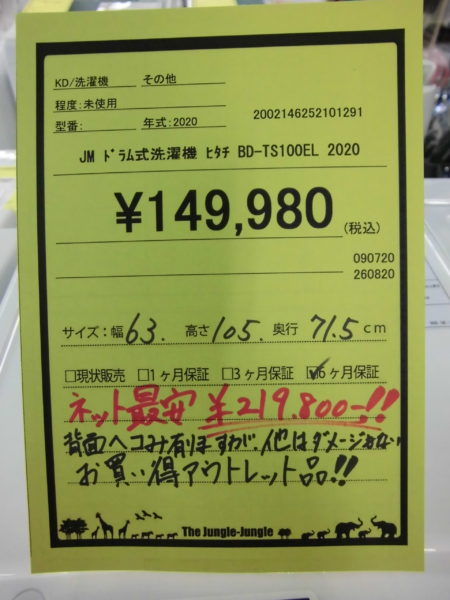 KD/洗濯機 その他
程度:未使用
型番: 年式:2020 2002146252101291
JM ﾄﾞﾗﾑ式洗濯機 ﾋﾀﾁ BD-TS100EL 2020
¥149,980 (税込)
090720
260820
サイズ:幅 63. 高さ 105. 奥行 71.5 cm
□現状販売 □1ヶ月保証 □3ヶ月保証 ☑6ヶ月保証
ネット最安 ¥219.800-!!
背面ヘコみ有り 他はダメージなし
お買い得アウトレット品!!
The Jungle-Jungle